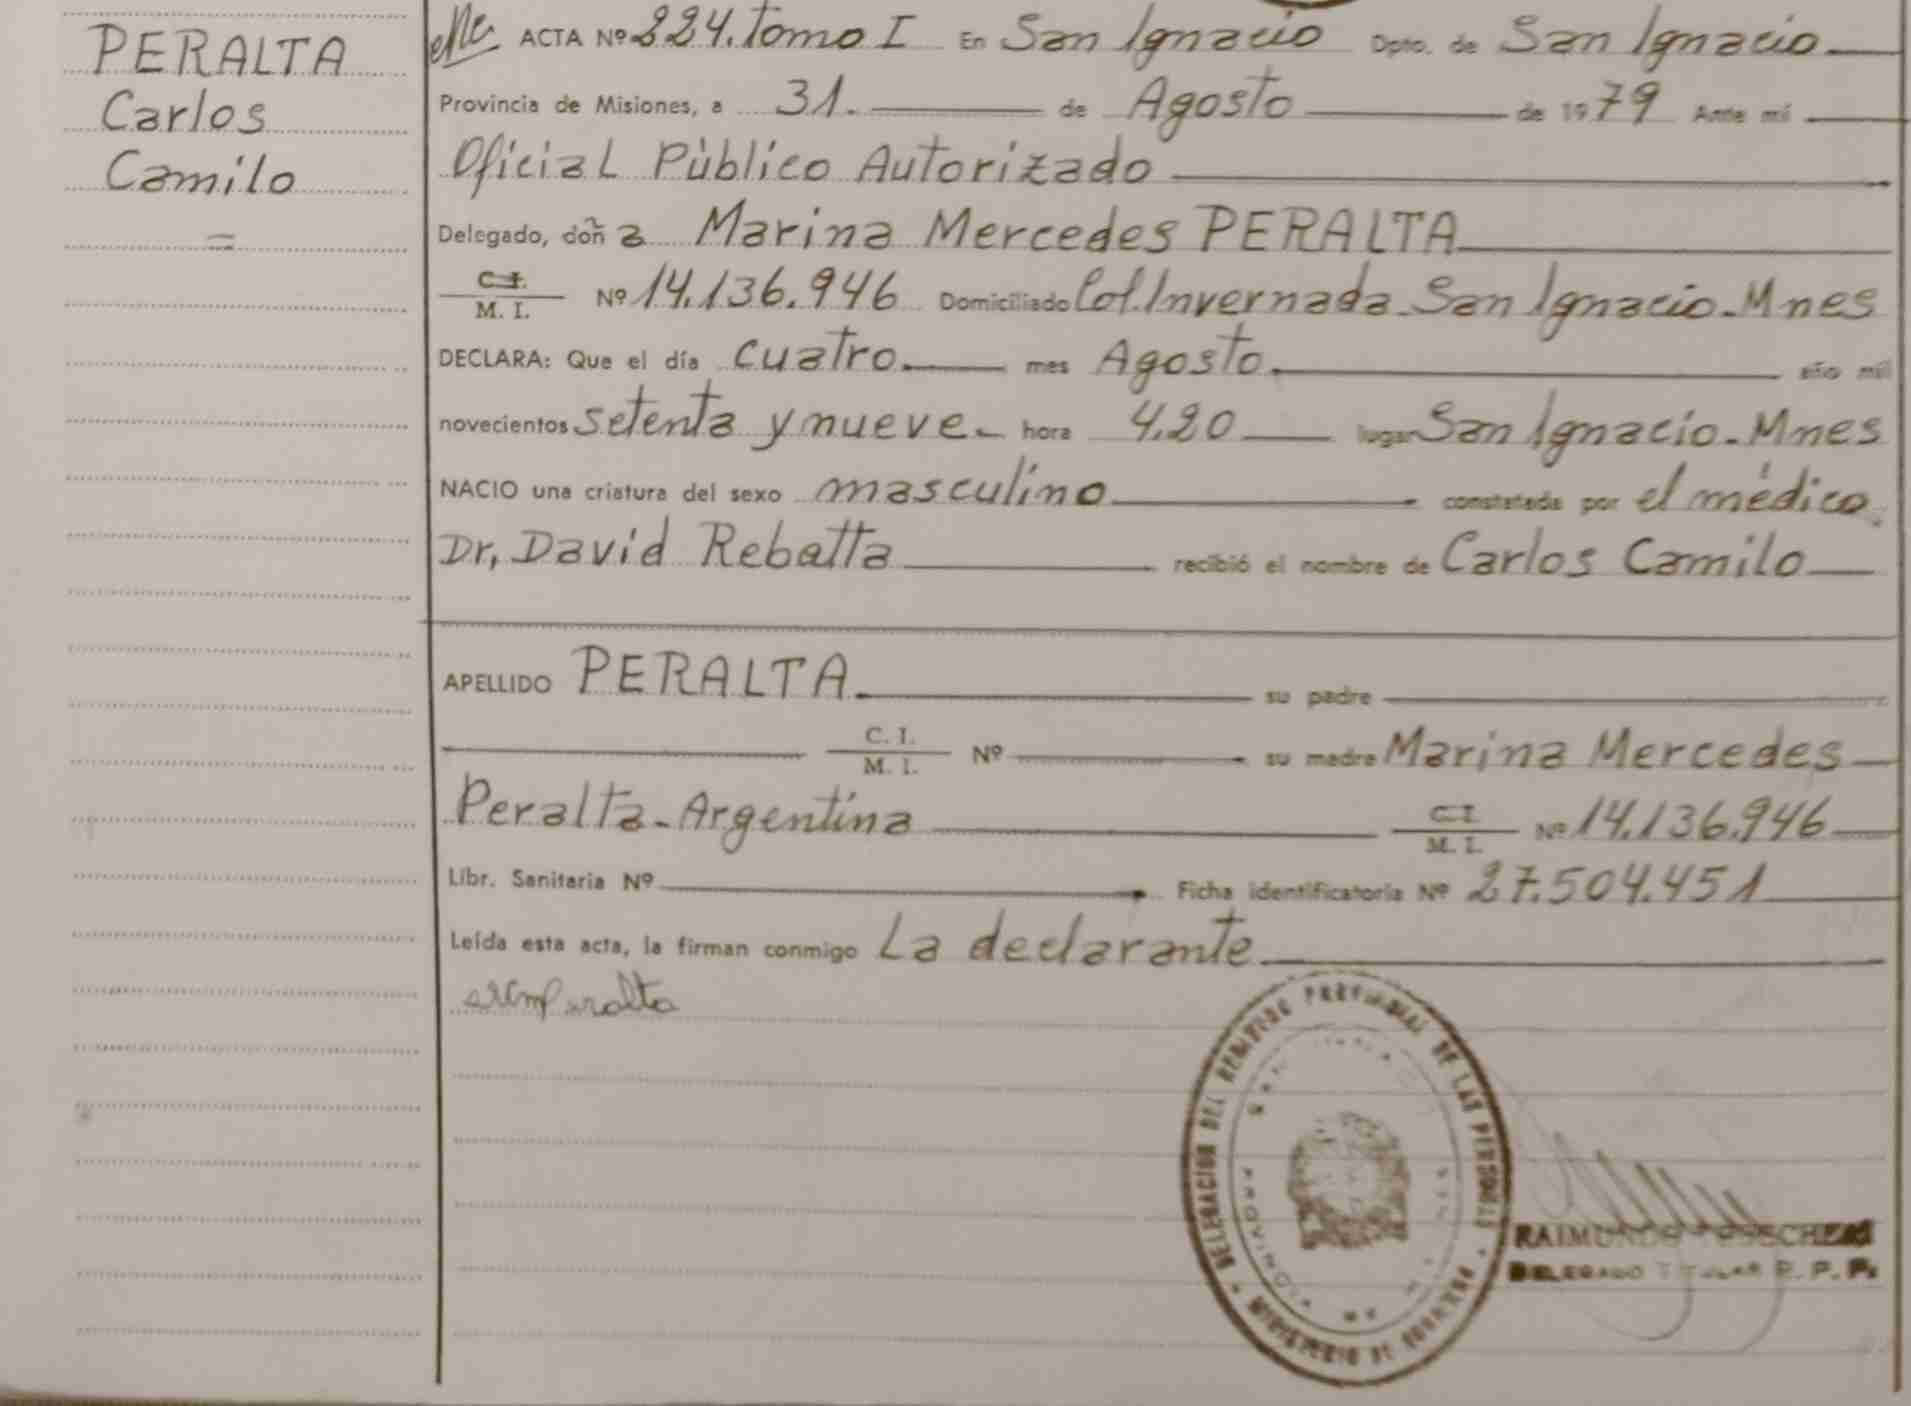 PERALTA
Carlos
Camilo
ACTA Nº 224. Tomo I En San Ignacio Dpto. de San Ignacio
Provincia de Misiones, a 31. de Agosto de 1979 Ante mí
Oficial Público Autorizado
Delegado, doña Marina Mercedes PERALTA
C. I. / M. I. Nº 14.136.946 Domiciliado Col. Invernada - San Ignacio - Mnes
DECLARA: Que el día cuatro. mes Agosto. año mil
novecientos setenta y nueve - hora 4.20 lugar San Ignacio - Mnes
NACIO una criatura del sexo masculino constatada por el médico
Dr, David Rebatta recibió el nombre de Carlos Camilo
APELLIDO PERALTA. su padre
C. I. / M. I. Nº su madre Marina Mercedes
Peralta - Argentina C. I. / M. I. Nº 14.136.946
Libr. Sanitaria Nº Ficha identificatoria Nº 27.504.451
Leída esta acta, la firman conmigo La declarante
DELEGACION DEL REGISTRO PROVINCIAL DE LAS PERSONAS
MINISTERIO DE GOBIERNO
RAIMUNDO
DELEGADO TITULAR R. P. P.